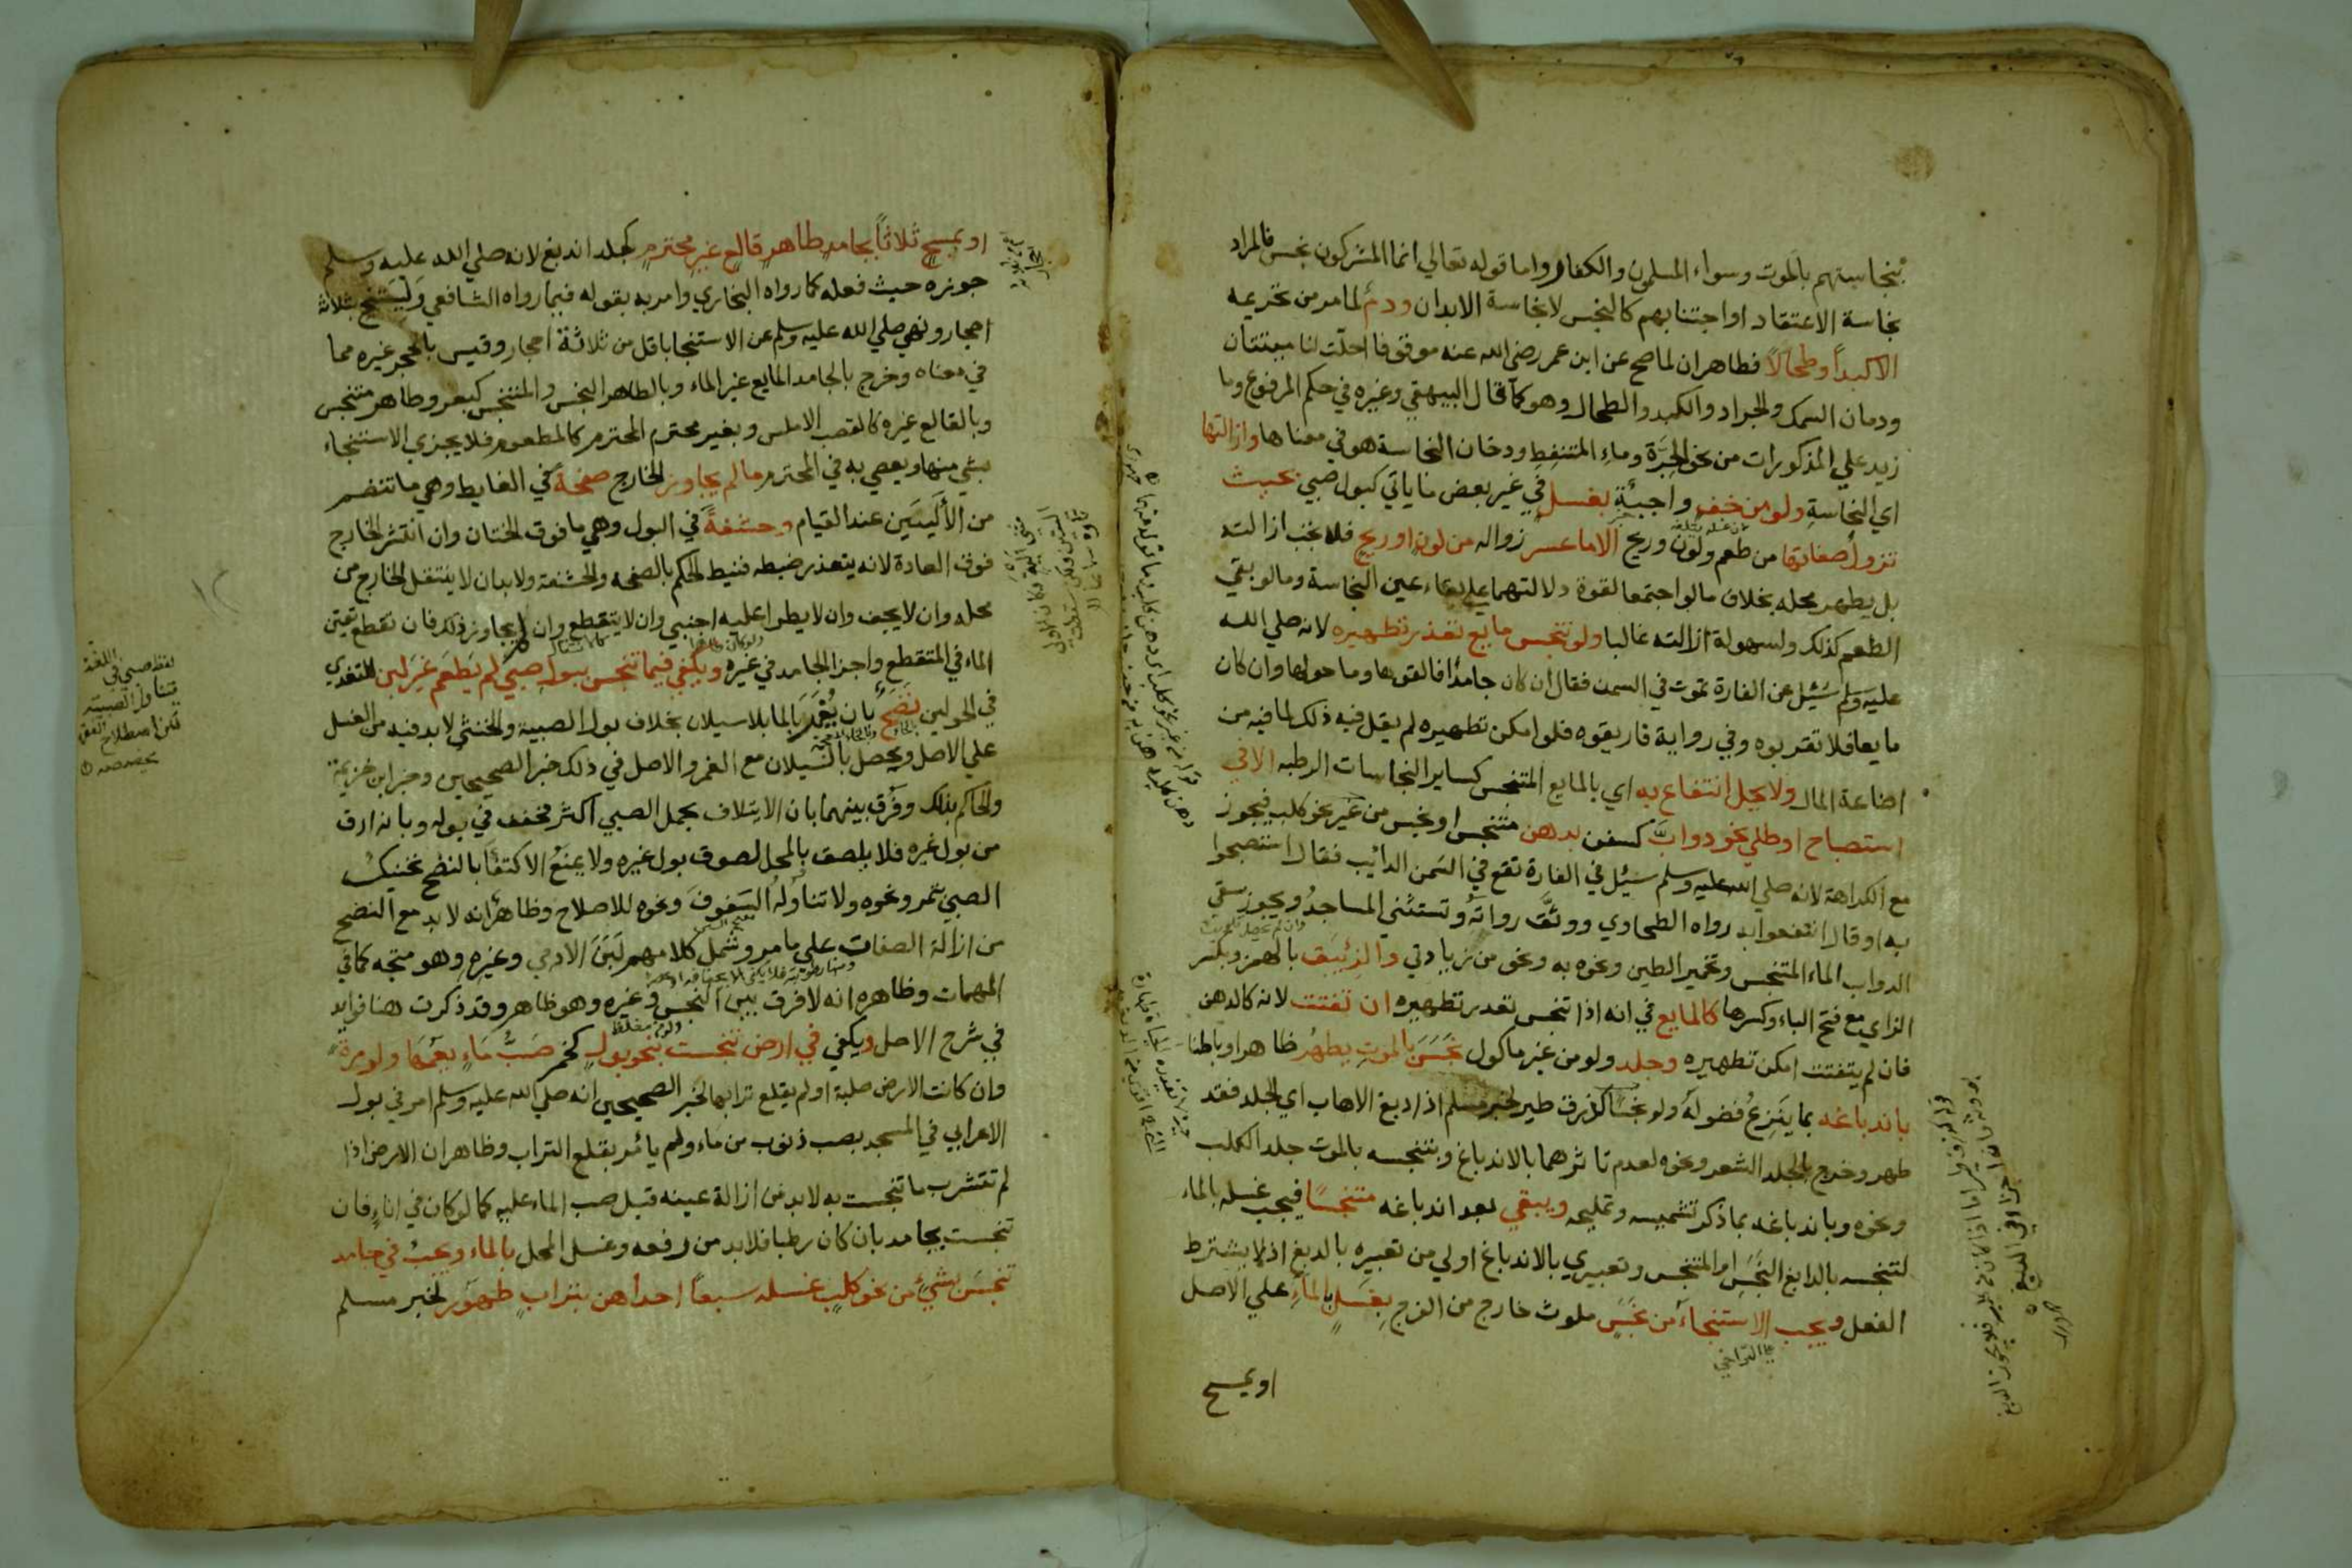 بنجاستهم بالموت وسواء المسلمون والكفار واما قوله تعالي انما المشركون نجس فالمراد
نجاسة الاعتقاد او اجتنابهم كالنجس لا نجاسة الابدان ودم لما مر من تحريمه
الا كبدا وطحالا فطاهران لما صح عن ابن عمر رضي الله عنه موقوفا احلت لنا ميتتان
ودمان السمك والجراد والكبد والطحال وهو كما قال البيهقي وغيره في حكم المرفوع وما
زيد علي المذكورات من نحو الجرة وماء المتنفط ودخان النجاسة هو في معناها وازالتها
اي النجاسة ولو من خف واجبة بغسل في غير بعض ما ياتي كبول صبي بحيث
تزول صفاتها من طعم ولون وريح الا ما عسر زواله من لون او ريح فلا تجب ازالته
بل يطهر محله بخلاف ما لو اجتمعا لقوة دلالتهما علي بقاء عين النجاسة وما لو بقي
الطعم كذلك ولسهولة ازالته غالبا ولو تنجس مايع تعذر تطهيره لانه صلي الله
عليه وسلم سئل عن الفارة تموت في السمن فقال ان كان جامدا فالقوها وما حولها وان كان
مايعا فلا تقربوه وفي رواية فاريقوه فلو امكن تطهيره لم يقل فيه ذلك لما فيه من
اضاعة المال ولا يحل انتفاع به اي بالمايع المتنجس كساير النجاسات الرطبه الا في
استصباح او طلي نحو دواب كسفن بدهن متنجس او نجس من غير نحو كلب فيجوز
مع الكراهة لانه صلي الله عليه وسلم سئل في الفارة تقع في السمن الدائب فقال استصبحوا
به او قال انتفعوا به رواه الطحاوي ووثق رواته وتستثني المساجد ويجوز سقي
الدواب الماء المتنجس وتخمير الطين ونحوه به ونحو من زيادتي والزئبق بالهمز وبكسر
الزاي مع فتح الباء وكسرها كالمايع في انه اذا تنجس تعذر تطهيره ان تفتت لانه كالدهن
فان لم يتفتت امكن تطهيره وجلد ولو من غير ماكول نجس بالموت يطهر ظاهرا وباطنا
باندباغه بما ينزع فضوله ولو نجسا كذرق طير لخبر مسلم اذا دبغ الاهاب اي الجلد فقد
طهر وخرج بالجلد الشعر ونحوه لعدم تاثرهما بالاندباغ وبتنجسه بالموت جلد الكلب
ونحوه وباندباغه بما ذكر تشميسه وتمليحه ويبقي بعد اندباغه متنجسا فيجب غسله بالماء
لتنجسه بالدابغ النجس او المتنجس وتعبيري بالاندباغ اولي من تعبيره بالدبغ اذ لا يشترط
الفعل ويجب الاستنجاء من نجس ملوث خارج من الفرج بغسل بالماء علي الاصل
او يمسح
او بمسح ثلاثا بجامد طاهر قالع غير محترم كجلد اندبغ لانه صلي الله عليه وسلم
جوزه حيث فعله كما رواه البخاري وامر به بقوله فيما رواه الشافعي وليستنج بثلاثة
احجار ونهي صلي الله عليه وسلم عن الاستنجا باقل من ثلاثة احجار وقيس بالحجر غيره مما
في معناه وخرج بالجامد المايع غير الماء وبالطاهر النجس والمتنجس كبعر وطاهر متنجس
وبالقالع غيره كالقصب الاملس وبغير محترم المحترم كالمطعوم فلا يجزي الاستنجاء
بشي منها ويعصي به في المحترم ما لم يجاوز الخارج صفحة في الغايط وهي ما تنضم
من الأليين عند القيام وحشفة في البول وهي ما فوق الختان وان انتشر الخارج
فوق العادة لانه يتعذر ضبطه فنيط الحكم بالصفحه والحشفة ولا بد ان لا ينتقل الخارج من
محله وان لا يجف وان لا يطرا عليه اجنبي وان لا يتقطع وان لم يجاوز ذلك فان تقطع تعين
الماء في المتقطع واجزا الجامد في غيره ويكفي فيما تنجس ببول صبي لم يطعم غير لبن للتغذي
في الحولين نضح بان يغمر بالما بلا سيلان بخلاف بول الصبية والخنثي لا بد فيه من الغسل
علي الاصل ويحصل بالسيلان مع الغمر والاصل في ذلك خبر الصحيحين وخبر ابن خزيمة
والحاكم بذلك وفرق بينهما بان الايتلاف بحمل الصبي اكثر فخفف في بوله وبانه ارق
من بول غيره فلا يلصق بالمحل لصوق بول غيره ولا يمنع الاكتفا بالنضح تحنيك
الصبي بتمر ونحوه ولا تناوله السفوف ونحوه للاصلاح وظاهر انه لا بد مع النضح
من ازالة الصفات علي ما مر وشمل كلامهم لبن الادمي وغيره وهو متجه كما في
المهمات وظاهره انه لا فرق بين النجس وغيره وهو ظاهر وقد ذكرت هنا فوايد
في شرح الاصل ويكفي في ارض تنجست بنحو بول كخمر صب ماء يعمها ولو مرة
وان كانت الارض صلبة او لم يقلع ترابها لخبر الصحيحين انه صلي الله عليه وسلم امر في بول
الاعرابي في المسجد بصب ذنوب من ماء ولم يأمر بقلع التراب وظاهر ان الارض اذا
لم تتشرب ما تنجست به لا بد من ازالة عينه قبل صب الماء عليه كما لو كان في اناء فان
تنجست بجامد بان كان رطبا فلا بد من رفعه وغسل المحل بالماء ويجب في جامد
تنجس بشئ من نحو كلب غسله سبعا احداهن بتراب طهور لخبر مسلم
لفظ صبي في اللغة
يتناول الصبية
لكن اصطلاح الفقها
يخصصه